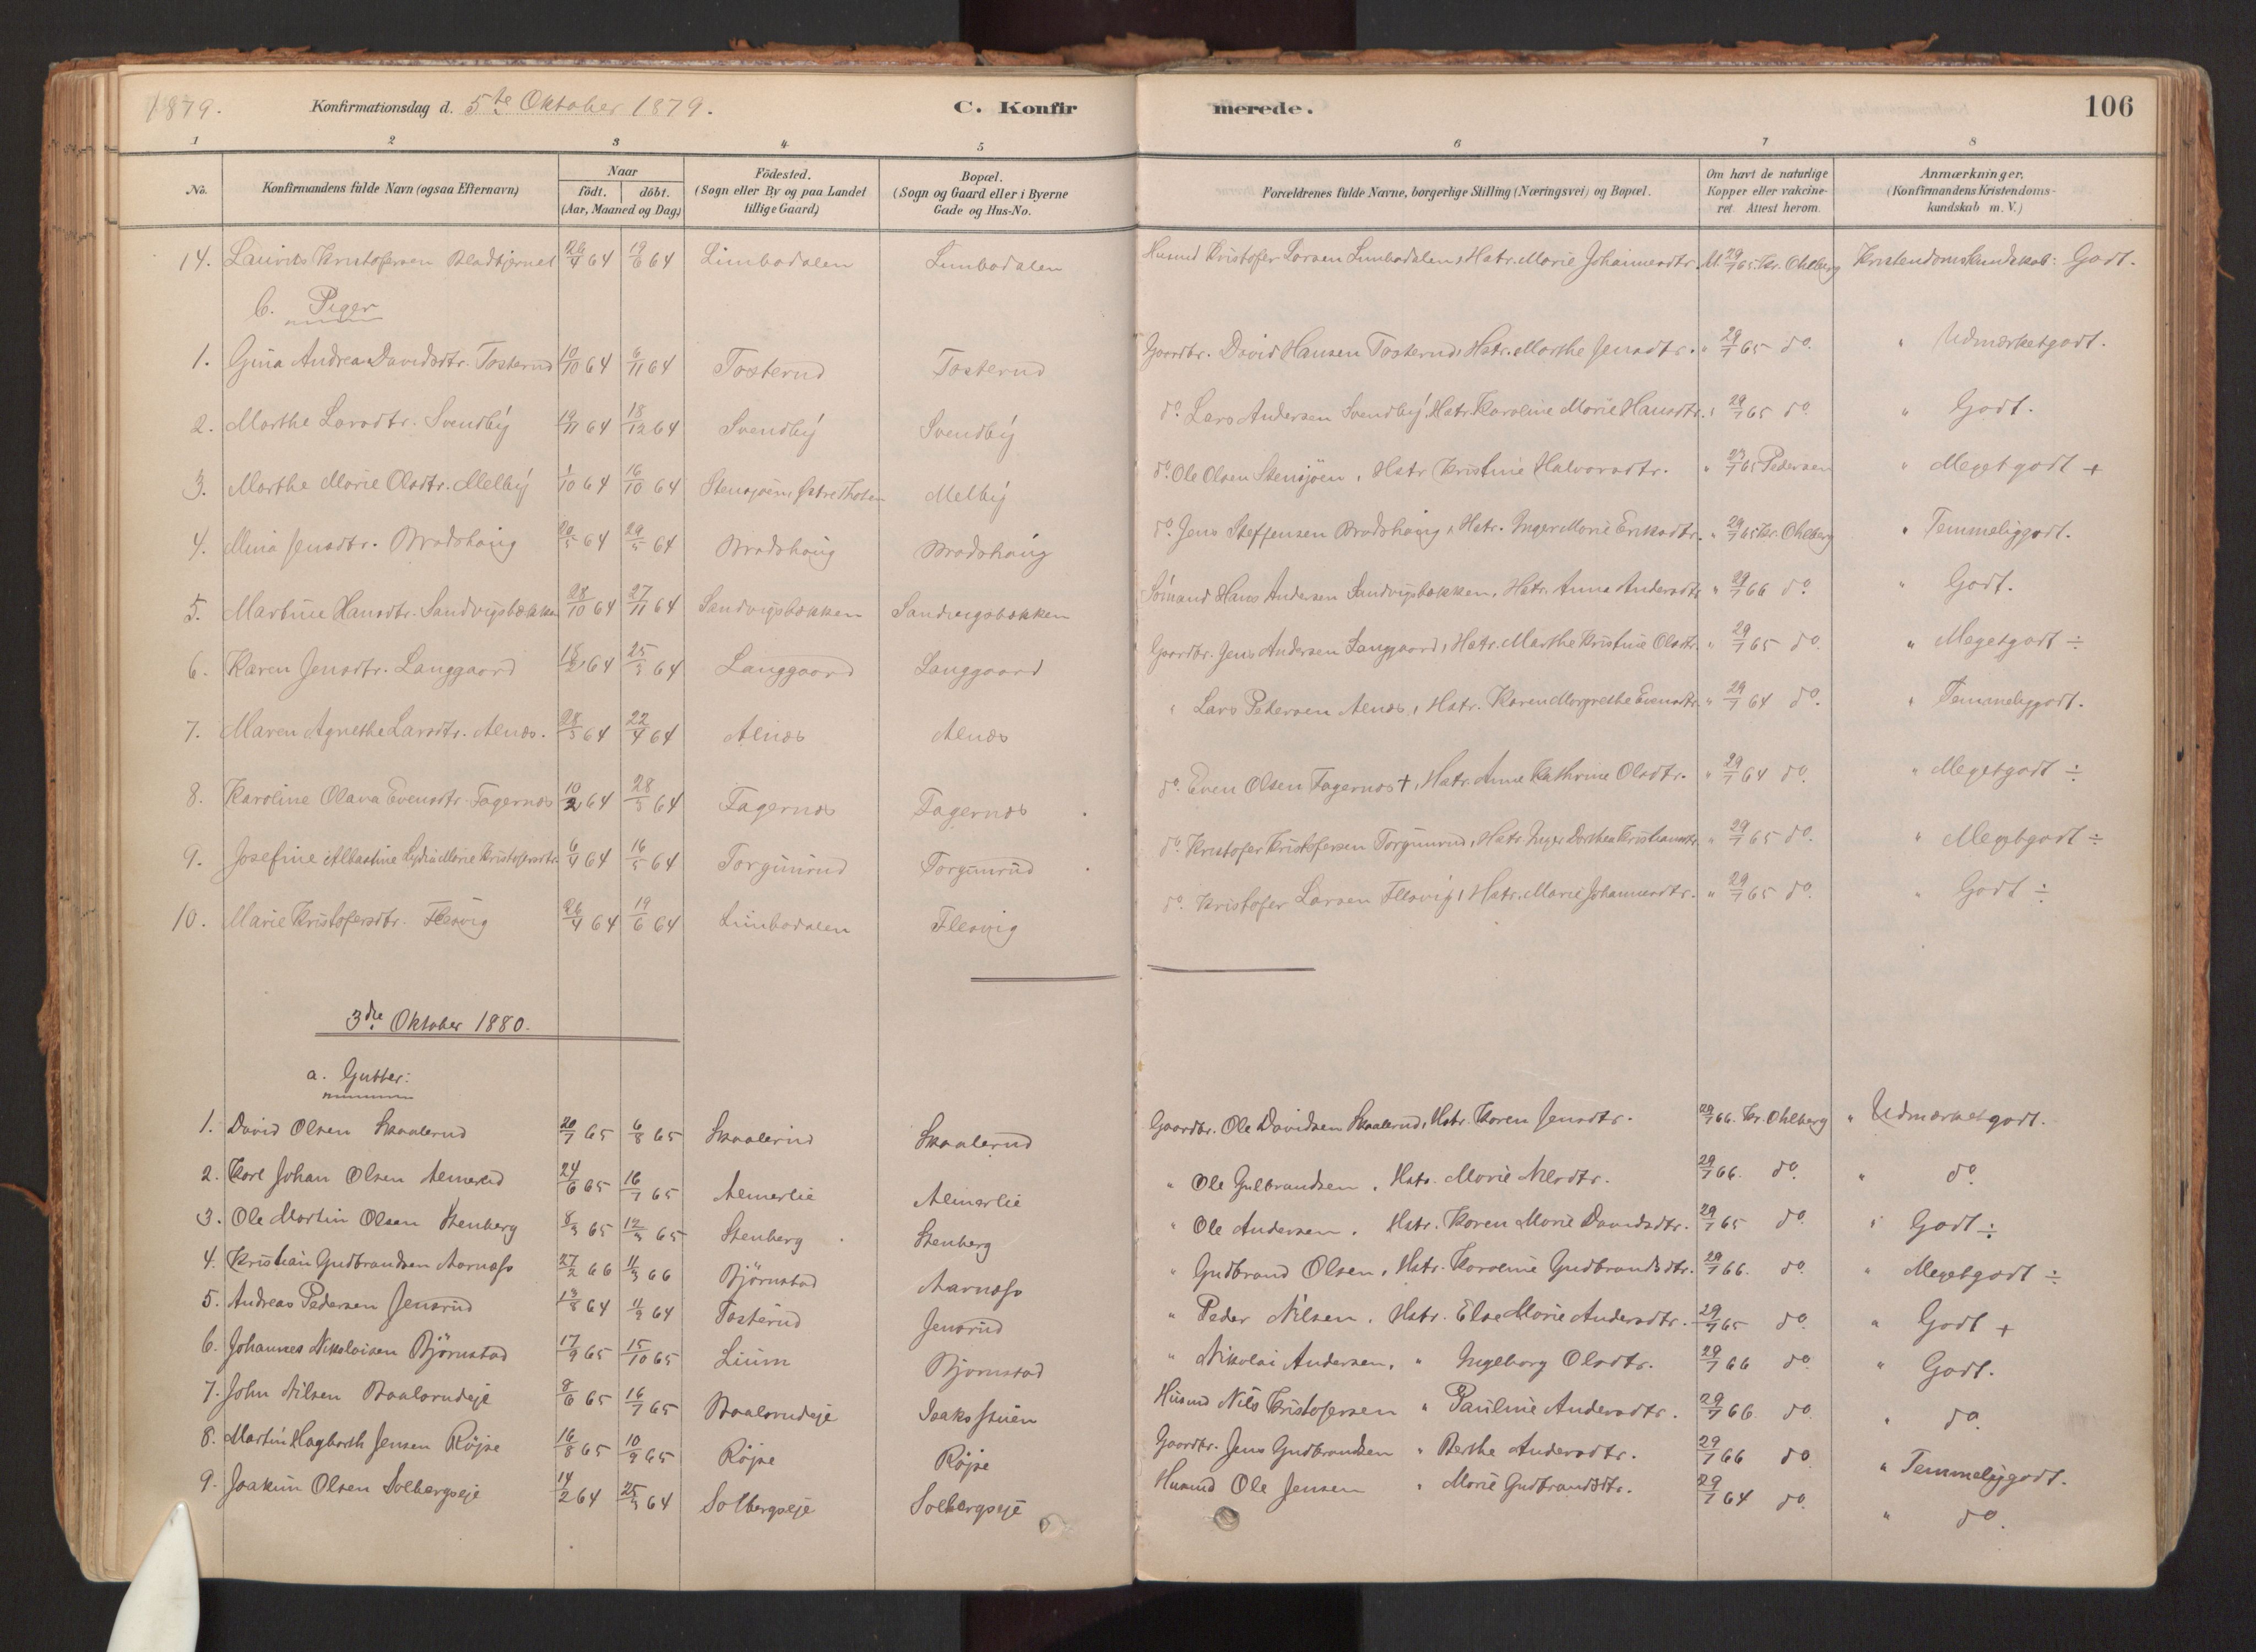 1879. Konfirmationsdag d. 5te Oktober 1879. C. Konfir merede. 106
1 2 3 4 5 6 7 8
No. Konfirmandens fulde Navn (ogsaa Efternavn) Naar født. døbt. (Aar, Maaned og Dag) Födested. (Sogn eller By og paa Landet tillige Gaard) Bopæl. (Sogn og Gaard eller i Byerne Gade og Hus-No. Forældrenes fulde Navne, borgerlige Stilling (Næringsvei) og Bopæl. Om havt de naturlige Kopper eller vakcineret. Attest herom. Anmærkninger. (Konfirmandens Kristendomskundskab m. V.)
14. Laurits Kristofersen Bladkjernet 26/4 64 19/6 64 Limbodalen Limbodalen Husmd Kristofer Larsen Limbodalen, Hstr. Marie Johannesdtr. M. 29/7 65. Kr. Ohlberg Kristendomskundskab: Godt.
b. Piger
1. Gina Andrea Davidsdtr. Tosterud 10/10 64 6/11 64 Tosterud Tosterud Gaardbr. David Hansen Tosterud, Hstr. Marthe Jensdtr. " 29/7 65 do. " Udmærketgodt.
2. Marthe Larsdtr. Svendby 19/11 64 18/12 64 Svendby Svendby do. Lars Andersen Svendby, Hstr. Karoline Marie Hansdtr. " 29/7 65 do. " Godt.
3. Marthe Marie Olsdtr. Melby 1/10 64 16/10 64 Stensjøen, Østre Thoten Melby do. Ole Olsen Stensjøen, Hstr Kristine Halvorsdtr. " 23/7 65 Pedersen " Megetgodt +
4. Mina Jensdtr. Bradshaug 20/5 64 29/5 64 Bradshaug Bradshaug do. Jens Steffensen Bradshaug, Hstr. Inger Marie Eriksdtr. " 29/7 65 Kr. Ohlberg " Temmeliggodt.
5. Martine Hansdtr. Sandvigsbakken 28/10 64 27/11 64 Sandvigsbakken Sandvigsbakken Sömand Hans Andersen Sandvigsbakken, Hstr. Anna Andersdtr. " 29/7 66 do. " Godt.
6. Karen Jensdtr. Langgaard 18/2 64 25/3 64 Langgaard Langgaard Gaardbr. Jens Andersen Langgaard, Hstr. Marthe Kristine Olsdtr. " 29/7 65 do. " Megetgodt ÷
7. Maren Agnethe Larsdtr. Alnæs. 28/3 64 22/4 64 Alnæs Alnæs " Lars Pedersen Alnæs, Hstr. Karen Margrethe Evensdtr. " 29/7 64 do. " Temmeliggodt.
8. Karoline Olava Evensdtr. Fagernæs 10/2 64 28/3 64 Fagernæs Fagernæs do. Even Olsen Fagernæs +, Hstr. Anne Kathrine Olsdtr. " 29/7 64 do. " Megetgodt ÷
9. Josefine Albertine Lydia Marie Kristofersdtr. 6/4 64 16/5 64 Torgunrud Torgunrud do. Kristofer Kristofersen Torgunrud, Hstr. Inger Dorthea Kristiansdtr. " 29/7 65 do. " Megetgodt ÷
10. Marie Kristofersdtr. Flesvig 26/4 64 19/6 64 Limbodalen Flesvig do. Kristofer Larsen Flesvig, Hstr. Marie Johannesdtr. " 29/7 65 do. " Godt ÷
3die Oktober 1880.
a. Gutter:
1. David Olsen Skaalerud 20/7 65 6/8 65 Skaalerud Skaalerud Gaardbr. Ole Davidsen Skaalerud, Hstr. Karen Jensdtr. 29/7 66. Kr. Ohlberg " Udmærketgodt.
2. Karl Johan Olsen 24/6 65 16/7 65 Almerlie Almerlie " Ole Gulbrandsen, Hstr. Marie Nilsdtr. 29/7 66. do. " do.
3. Ole Martin Olsen Stenberg 8/3 65 12/3 65 Stenberg Stenberg " Ole Andersen, Hstr. Karen Marie Davidsdtr. 29/7 65 do. " Godt ÷
4. Kristian Gudbrandsen Aarnæss 27/2 66 11/3 66 Bjørnstad Aarnæss " Gudbrand Olsen, Hstr. Karoline Gudbrandsdtr. 29/7 66. do. " Megetgodt ÷
5. Andreas Pedersen Jensrud 13/8 64 11/9 64 Tosterud Jensrud " Peder Nilsen, Hstr. Else Marie Andersdtr. 29/7 65 do. " Godt +
6. Johannes Nikolaisen Bjørnstad 17/9 65 15/10 65 Lium Bjørnstad " Nikolai Andersen, " Ingeborg Olsdtr. 29/7 66 do. " Godt.
7. John Nilsen Baalerudeje 8/6 65 16/7 65 Baalerudeje Isaksstuen Husmd Nils Kristofersen " Pauline Andersdtr. 29/7 66 do. " do.
8. Martin Hagbarth Jensen Røjse 16/8 65 10/9 65 Røjse Røjse Gaardbr. Jens Gudbrandsen " Berthe Andersdtr. 29/7 66 do " Temmeliggodt.
9. Joakim Olsen Solbergseje 14/2 64 25/3 64 Solbergseje Solbergseje Husmd Ole Jensen " Marie Gudbrandsdtr. 29/7 64 do. " do.